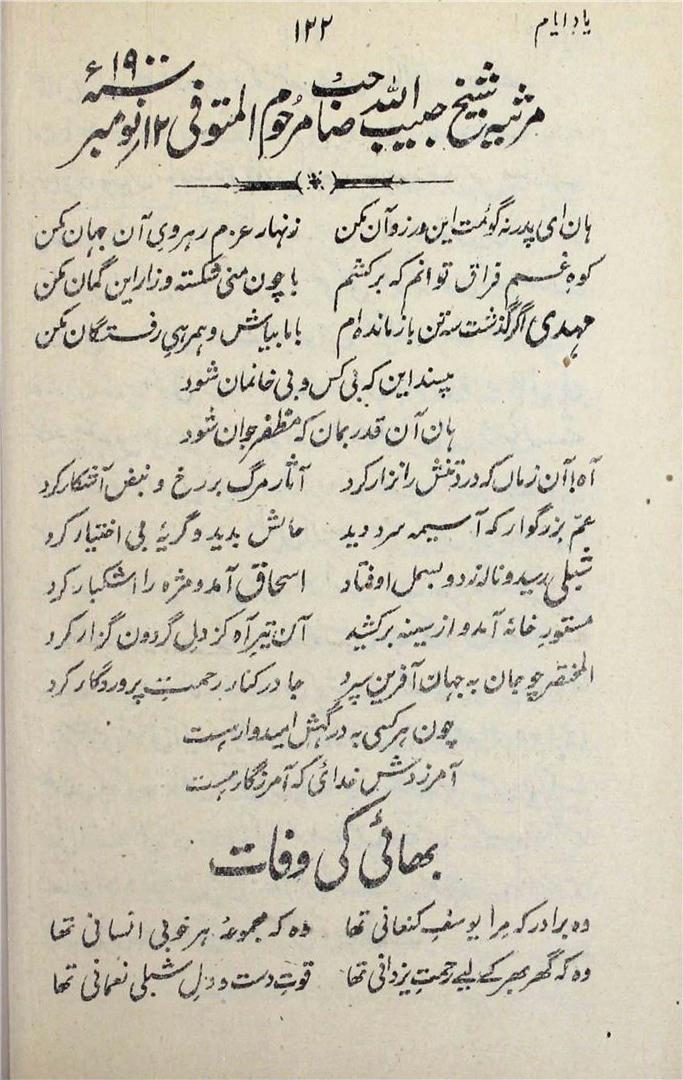 یاد ایام
۱۲۲
مرثیہ شیخ حبیب اللہ صاحب مرحوم المتوفی ۱۲ نومبر سنہ ۱۹۰۰ء
ہان ای پدر نہ گویمت این ورزو آن مکن زنہار عزم رہروی آن جہان مکن
کوہ غم فراق توانم کہ برکشم با چون منی شکستہ و زار این گمان مکن
مہدی اگر گذشت سہ تن باز ماندہ ام با ما بباش و ہمرہی رفتگان مکن
مپسند این کہ بی کس و بی خانمان شود
ہان آن قدر بمان کہ مظفر جوان شود
آہ اَآن زمان کہ درد تنش را نزار کرد آثار مرگ بر رخ و نبض آشکار کرد
عمّ بزرگوار کہ آسیمہ سر دوید حالش بدید و گریۂ بی اختیار کرد
شبلی رسید و نالہ زد و بسمل اوفتاد اسحاق آمد و مژہ را اشکبار کرد
مستور خانہ آمد و از سینہ برکشید آن تیر آہ کز دل گردون گزار کرد
المختصر چو جان بہ جہان آفرین سپرد جا در کنار رحمت پروردگار کرد
چون ہر کسی بہ درگہش امیدوار ہست
آمرزدش خدائی کہ آمرزگار ہست
بھائی کی وفات
وہ برادر کہ مرا یوسف کنعانی تھا وہ کہ مجموعۂ ہر خوبی انسانی تھا
وہ کہ گھر بھر کے لیے رحمت یزدانی تھا قوت دست و دل شبلی نعمانی تھا